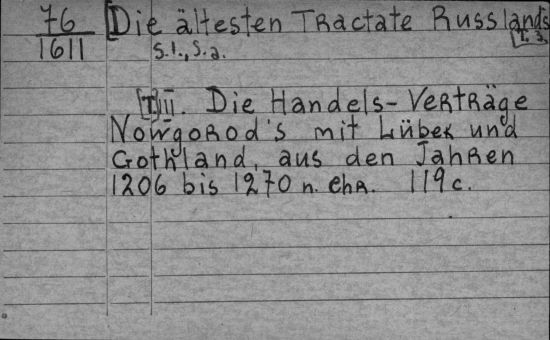 76/1611 [Die ältesten Tractate Russlands
s.l., s.a. [T. 2.
[T] II. Die Handels-Verträge
Nowgorod's mit Lübek und
Gothland, aus den Jahren
1206 bis 1270 n. Chr. 119 c.